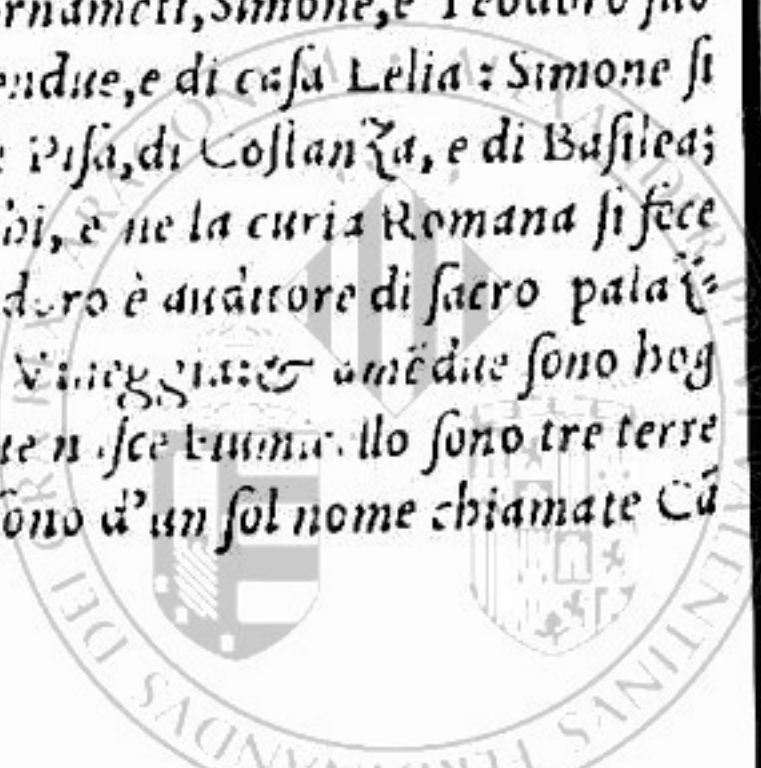 Simone, e Teodoro suo
endue, e di casa Lelia : Simone si
Pisa, di Costanza, e di Basilea;
bi, e ne la curia Romana si fece
doro è auditore di sacro pala
Vineggia: & amēdue sono hog
nasce sono tre terre
sono d'un sol nome chiamate Cā